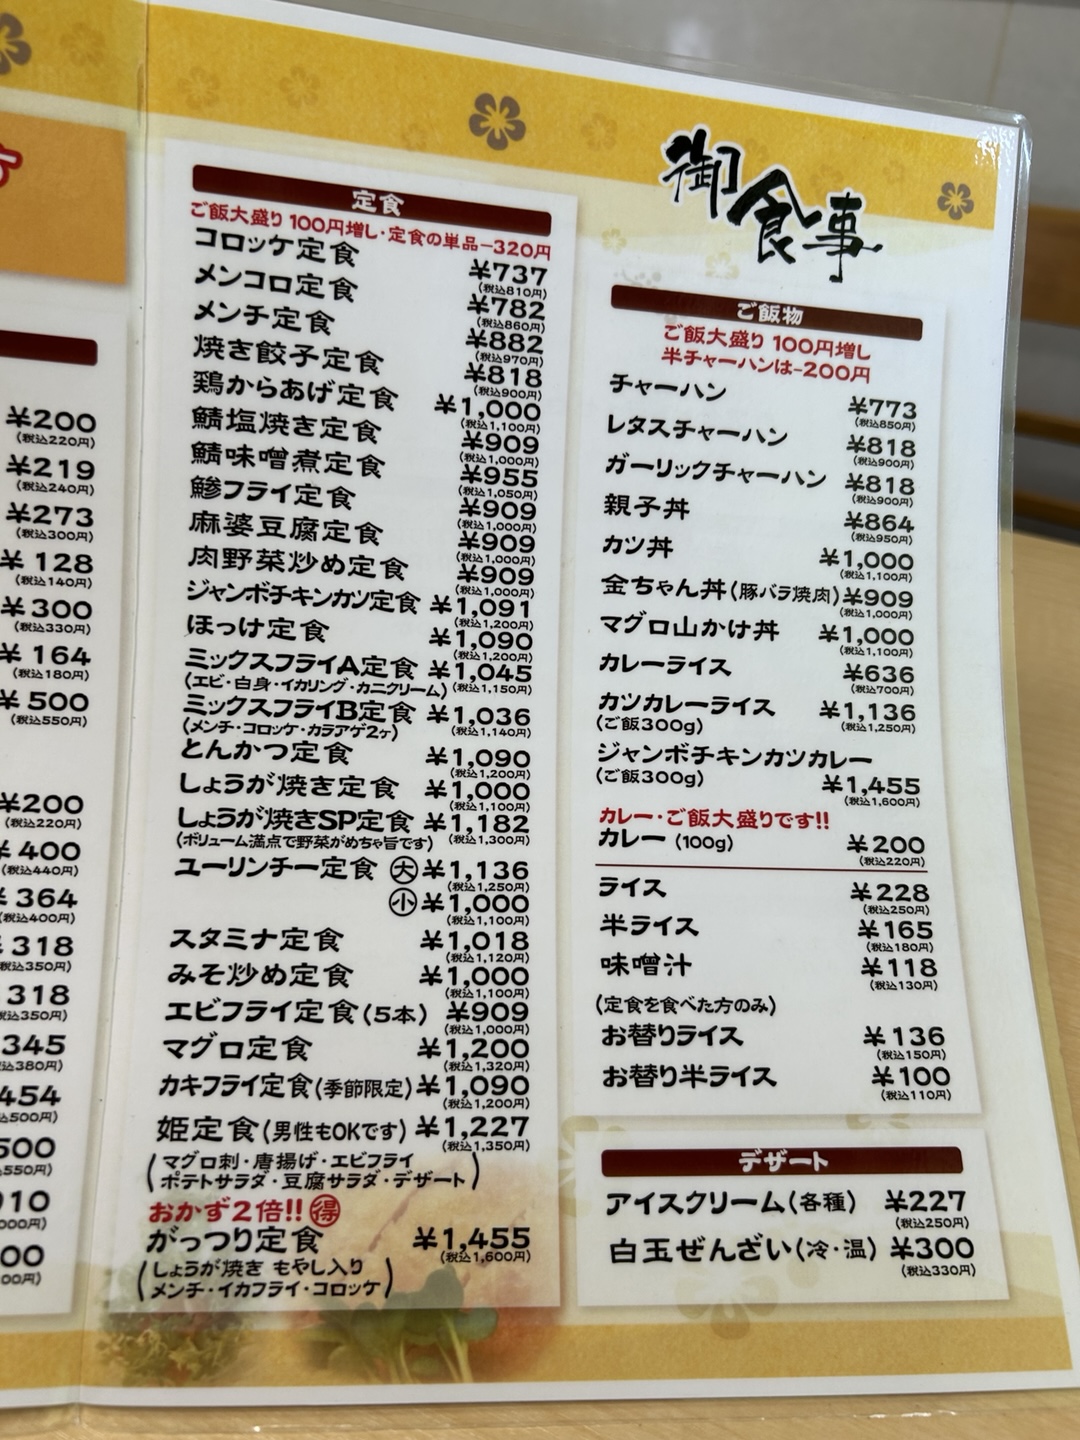 ¥200
(税込220円)
¥219
(税込240円)
¥273
(税込300円)
¥128
(税込140円)
¥300
(税込330円)
¥164
(税込180円)
¥500
(税込550円)
¥200
(税込220円)
¥400
(税込440円)
¥364
(税込400円)
318
(税込350円)
318
(税込350円)
345
税込380円)
454
込500円)
500
550円)
定食
ご飯大盛り 100円増し・定食の単品−320円
コロッケ定食 ¥737
(税込810円)
メンコロ定食 ¥782
(税込860円)
メンチ定食 ¥882
(税込970円)
焼き餃子定食 ¥818
(税込900円)
鶏からあげ定食 ¥1,000
(税込1,100円)
鯖塩焼き定食 ¥909
(税込1,000円)
鯖味噌煮定食 ¥955
(税込1,050円)
鯵フライ定食 ¥909
(税込1,000円)
麻婆豆腐定食 ¥909
(税込1,000円)
肉野菜炒め定食 ¥909
(税込1,000円)
ジャンボチキンカツ定食 ¥1,091
(税込1,200円)
ほっけ定食 ¥1,090
(税込1,200円)
ミックスフライA定食 ¥1,045
(エビ・白身・イカリング・カニクリーム) (税込1,150円)
ミックスフライB定食 ¥1,036
(メンチ・コロッケ・カラアゲ2ヶ) (税込1,140円)
とんかつ定食 ¥1,090
(税込1,200円)
しょうが焼き定食 ¥1,000
(税込1,100円)
しょうが焼きSP定食 ¥1,182
(ボリューム満点で野菜がめちゃ旨です) (税込1,300円)
ユーリンチー定食 大 ¥1,136
(税込1,250円)
小 ¥1,000
(税込1,100円)
スタミナ定食 ¥1,018
(税込1,120円)
みそ炒め定食 ¥1,000
(税込1,100円)
エビフライ定食(5本) ¥909
(税込1,000円)
マグロ定食 ¥1,200
(税込1,320円)
カキフライ定食(季節限定) ¥1,090
(税込1,200円)
姫定食(男性もOKです) ¥1,227
(税込1,350円)
(マグロ刺・唐揚げ・エビフライ
ポテトサラダ・豆腐サラダ・デザート)
おかず2倍!! 得
がっつり定食 ¥1,455
(税込1,600円)
(しょうが焼き もやし入り
メンチ・イカフライ・コロッケ)
御食事
ご飯物
ご飯大盛り 100円増し
半チャーハンは−200円
チャーハン ¥773
(税込850円)
レタスチャーハン ¥818
(税込900円)
ガーリックチャーハン ¥818
(税込900円)
親子丼 ¥864
(税込950円)
カツ丼 ¥1,000
(税込1,100円)
金ちゃん丼(豚バラ焼肉) ¥909
(税込1,000円)
マグロ山かけ丼 ¥1,000
(税込1,100円)
カレーライス ¥636
(税込700円)
カツカレーライス ¥1,136
(ご飯300g) (税込1,250円)
ジャンボチキンカツカレー
(ご飯300g) ¥1,455
(税込1,600円)
カレー・ご飯大盛りです!!
カレー(100g) ¥200
(税込220円)
ライス ¥228
(税込250円)
半ライス ¥165
(税込180円)
味噌汁 ¥118
(税込130円)
(定食を食べた方のみ)
お替りライス ¥136
(税込150円)
お替り半ライス ¥100
(税込110円)
デザート
アイスクリーム(各種) ¥227
(税込250円)
白玉ぜんざい(冷・温) ¥300
(税込330円)